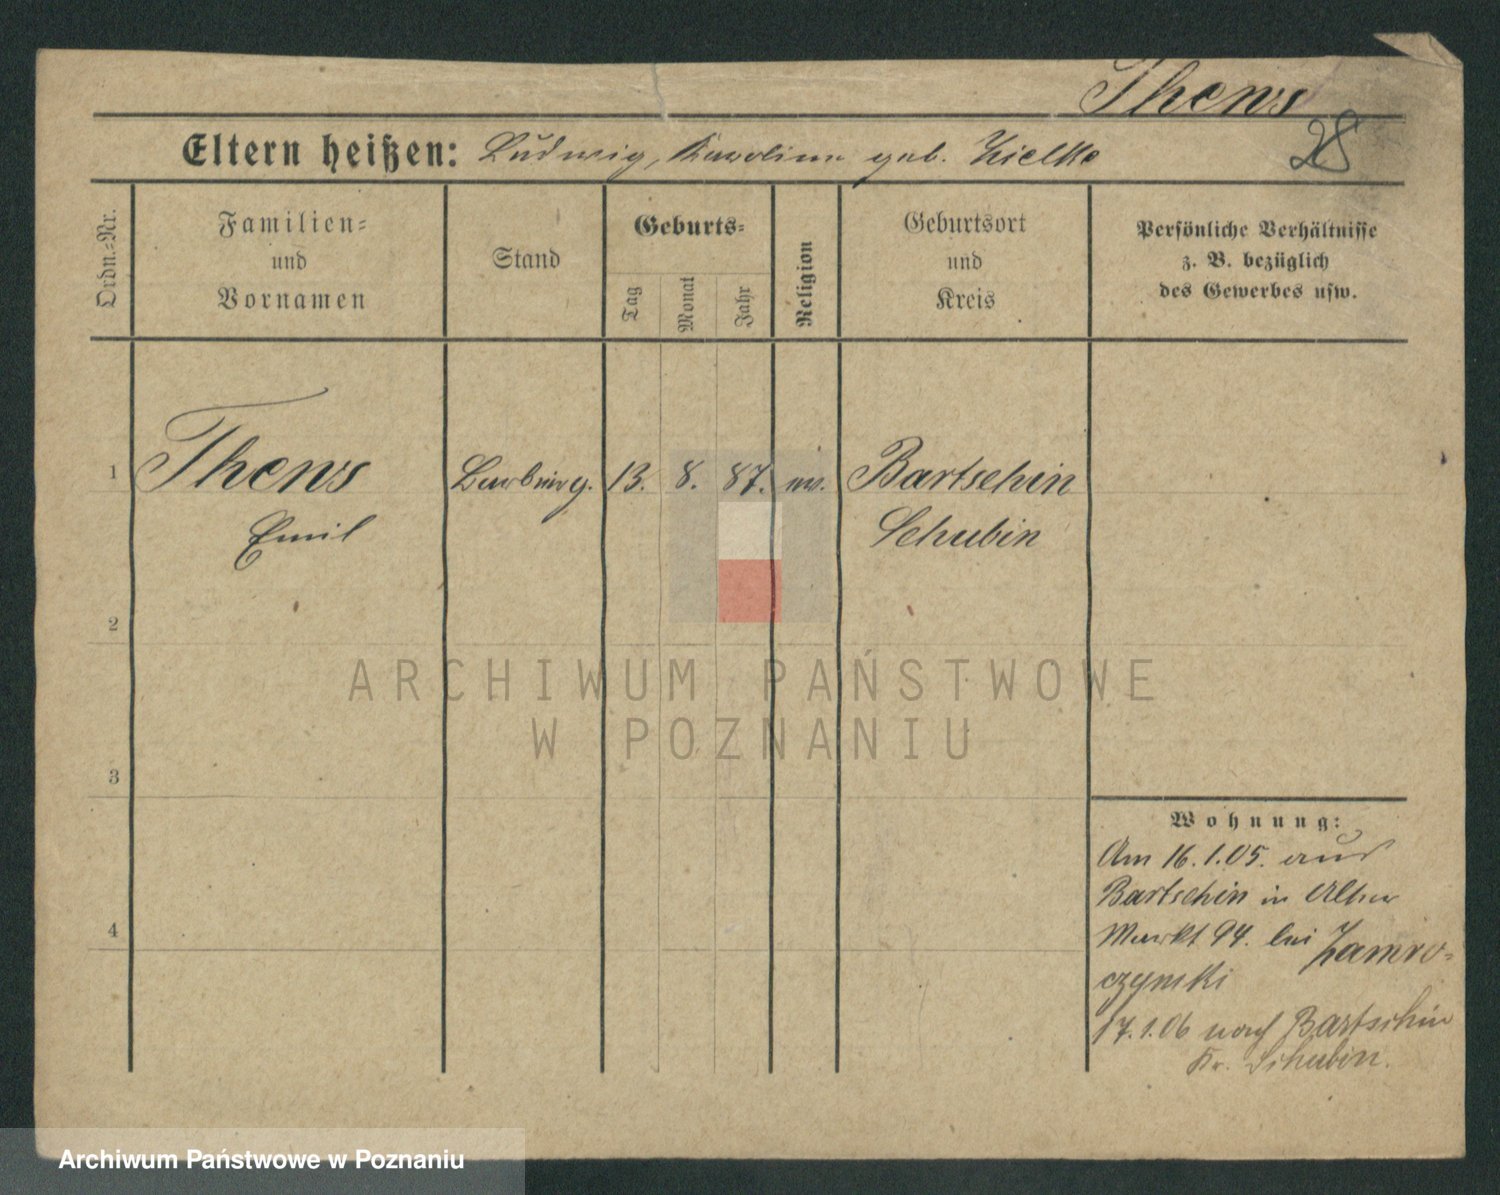 Thews
28
Eltern heißen: Ludwig, Karoline geb. Zielke
Ordn.-Nr.
Familien-
und
Vornamen
Stand
Geburts-
Tag
Monat
Jahr
Religion
Geburtsort
und
Kreis
Persönliche Verhältnisse
z. B. bezüglich
des Gewerbes usw.
1 Thews 13. 8. 87. ev. Bartschin
Emil Schubin
2
3
4
ARCHIWUM PAŃSTWOWE
W POZNANIU
Wohnung:
Am 16.1.05. aus
Bartschin in Alter
Markt 94. bei Zamro-
czynski
17.1.06 nach Bartschin
Kr. Schubin.
Archiwum Państwowe w Poznaniu